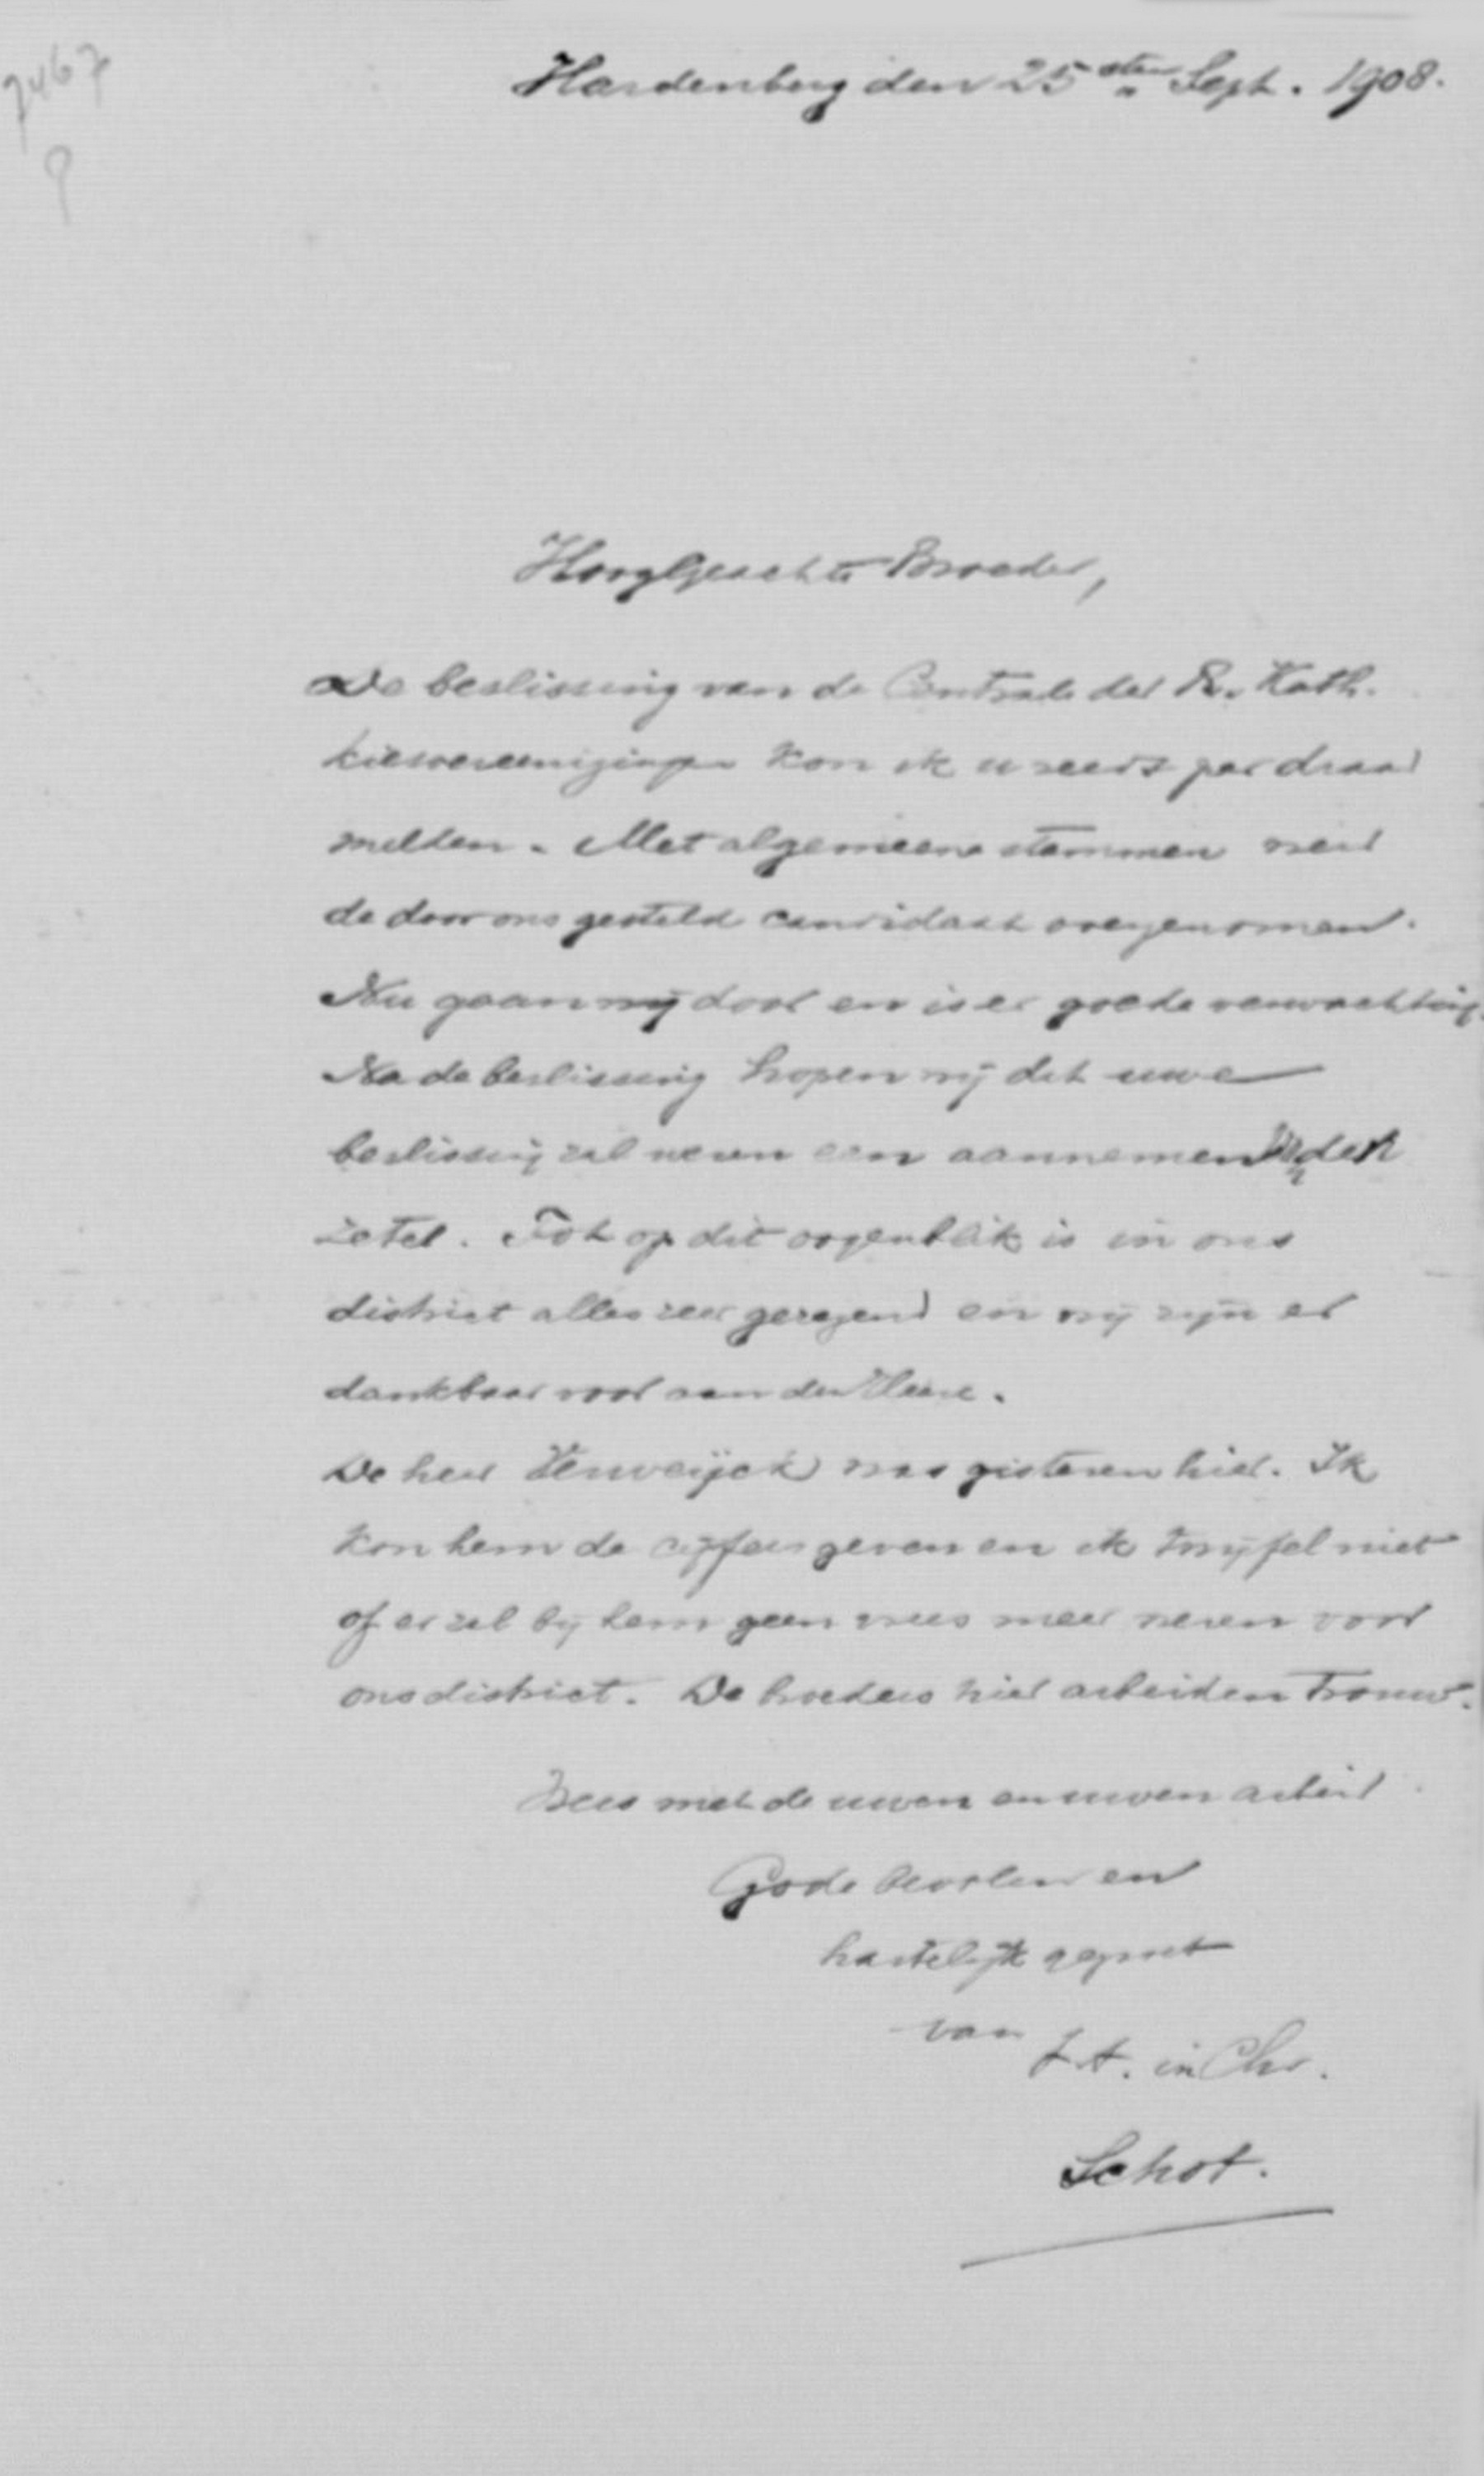 7467
Hardenberg den 25sten Sept. 1908.
HoogGeachte Broeder,
De beslissing van de Centrale der R. Kath.
kiesvereenigingen kon ik u reeds per draad
melden. Met algemeene stemmen werd
de door ons gestelde candidaat overgenomen.
Nu gaan wij door en is er goede verwachting.
Na de beslissing hopen wij dat uwe
beslissing zal wezen een aannemen van den
zetel. Tot op dit oogenblik is in ons
district alles zeer gezegend en wij zijn er
dankbaar voor aan den Heere.
De heer Verweijck was gisteren hier. Ik
kon hem de cijfers geven en ik twijfel niet
of er zal bij hem geen vrees meer wezen voor
ons district. De broeders hier arbeiden trouw.
Wees met de uwen en uwen arbeid
Gode bevolen en
hartelijk gegroet
van
t.t. in Chr.
Schot.